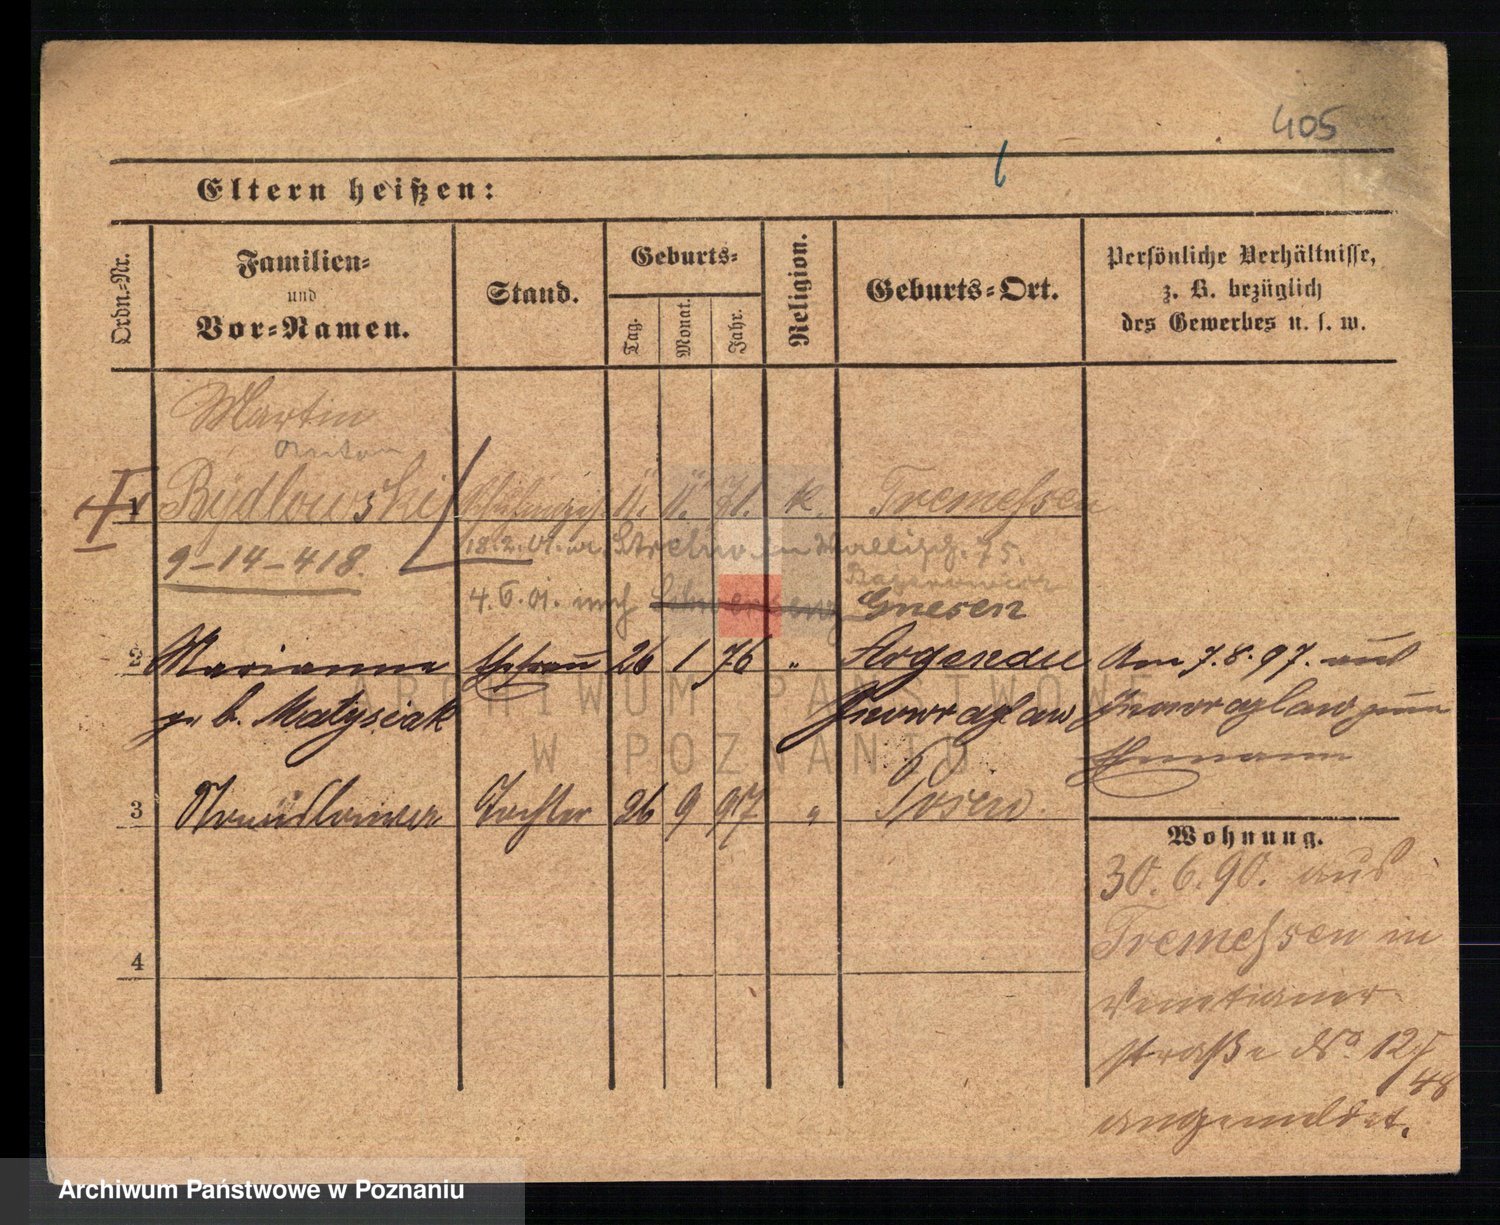 405
Eltern heißen:
Ordn.-Nr.
Familien-
und
Vor-Namen.
Stand.
Geburts-
Tag.
Monat.
Jahr.
Religion.
Geburts-Ort.
Persönliche Verhältnisse,
z. B. bezüglich
des Gewerbes u. s. w.
Martin
Anton
1 Bydlowski 11. 11. 71. k. Tremessen
9-14-418.
18.2.01. Strelno Wallisch. 75.
4.6.01. nach Gnesen
2 Marianne Ehefrau 26 1 76 " Argenau
geb. Matysiak Inowraglaw
Am 7.8.97. aus
Inowraglaw zum
Ehemann
3 Tochter 26 9 97 " Posen.
Wohnung.
30.6.90. aus
Tremessen in
Venetianer
straße No. 12
48
angemeldet.
4
ARCHIWUM PAŃSTWOWE
W POZNANIU
Archiwum Państwowe w Poznaniu